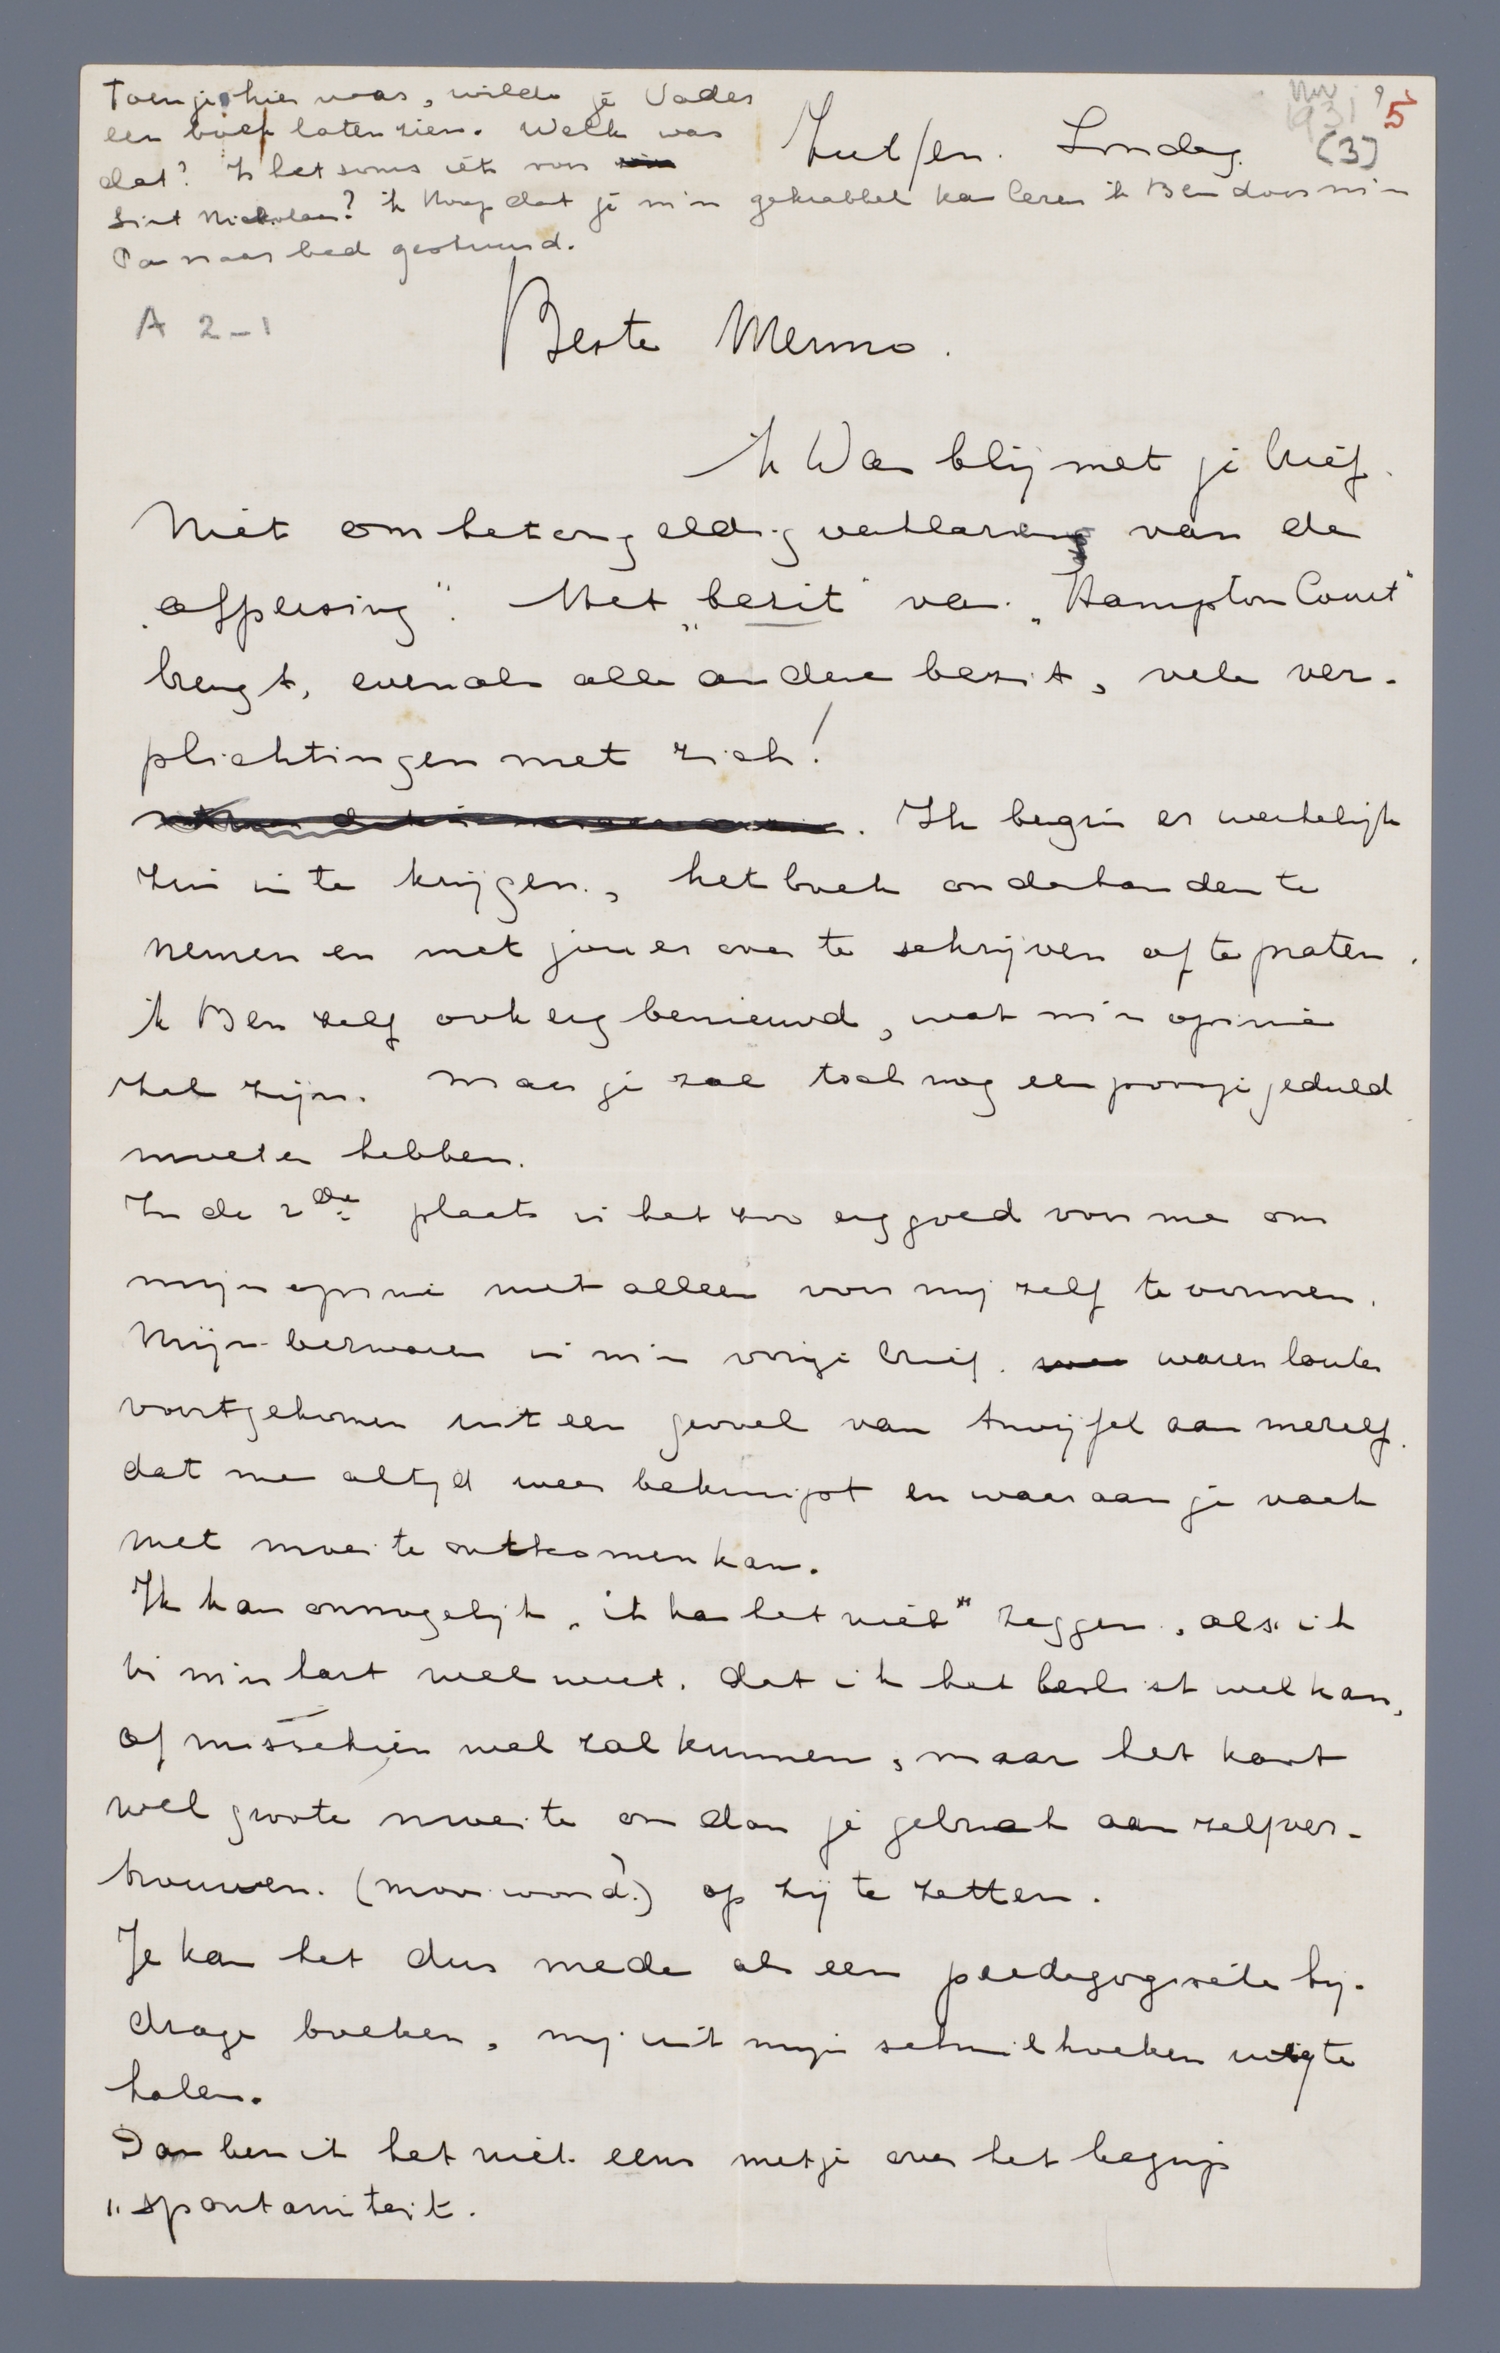 Toen je hier was, wilde je Vader
een brief laten zien. Welk was
dat? Is het soms iets voor
Sint Nickolaas? ik Hoop dat je m'n gekrabbel kan lezen ik Ben door m'n
Pa naar bed gestuurd.
Zutfen. Zondag.
Nov 1931 ? 5
(3)
A 2-1
Beste Menno.
ik Was blij met je brief.
Niet om het ongeldig verklaren van de
„afpersing". Het „bezit" van „Hampton Court"
brengt, evenals alle andere bezit, vele ver-
plichtingen met zich!
Ik begin er werkelijk
zin in te krijgen, het boek onderhanden te
nemen en met jou er over te schrijven of te praten.
ik Ben zelf ook erg benieuwd, wat m'n opinie
zal zijn. Maar je zal toch nog een poosje geduld
moeten hebben.
In de 2de plaats is het zoo erg goed voor me om
mijn opinie niet alleen voor mij zelf te vormen.
Mijn bezwaren in m'n vorige brief waren louter
voortgekomen uit een gevoel van twijfel aan mezelf.
dat me altijd weer bekruipt en waaraan je vaak
met moeite ontkomen kan.
Ik kan onmogelijk „ik kan het niet" zeggen, als ik
in m'n hart wel weet, dat ik het beslist wel kan,
of misschien wel zal kunnen, maar het kost
wel groote moeite om dan je gebrek aan zelfver-
trouwen. (mooi woord?) op zij te zetten.
Je kan het dus mede als een paedagogische bij-
drage boeken, mij uit mijn schuilhoeken uit te
halen.
Dan ben ik het niet eens met je over het begrip
„spontaniteit.